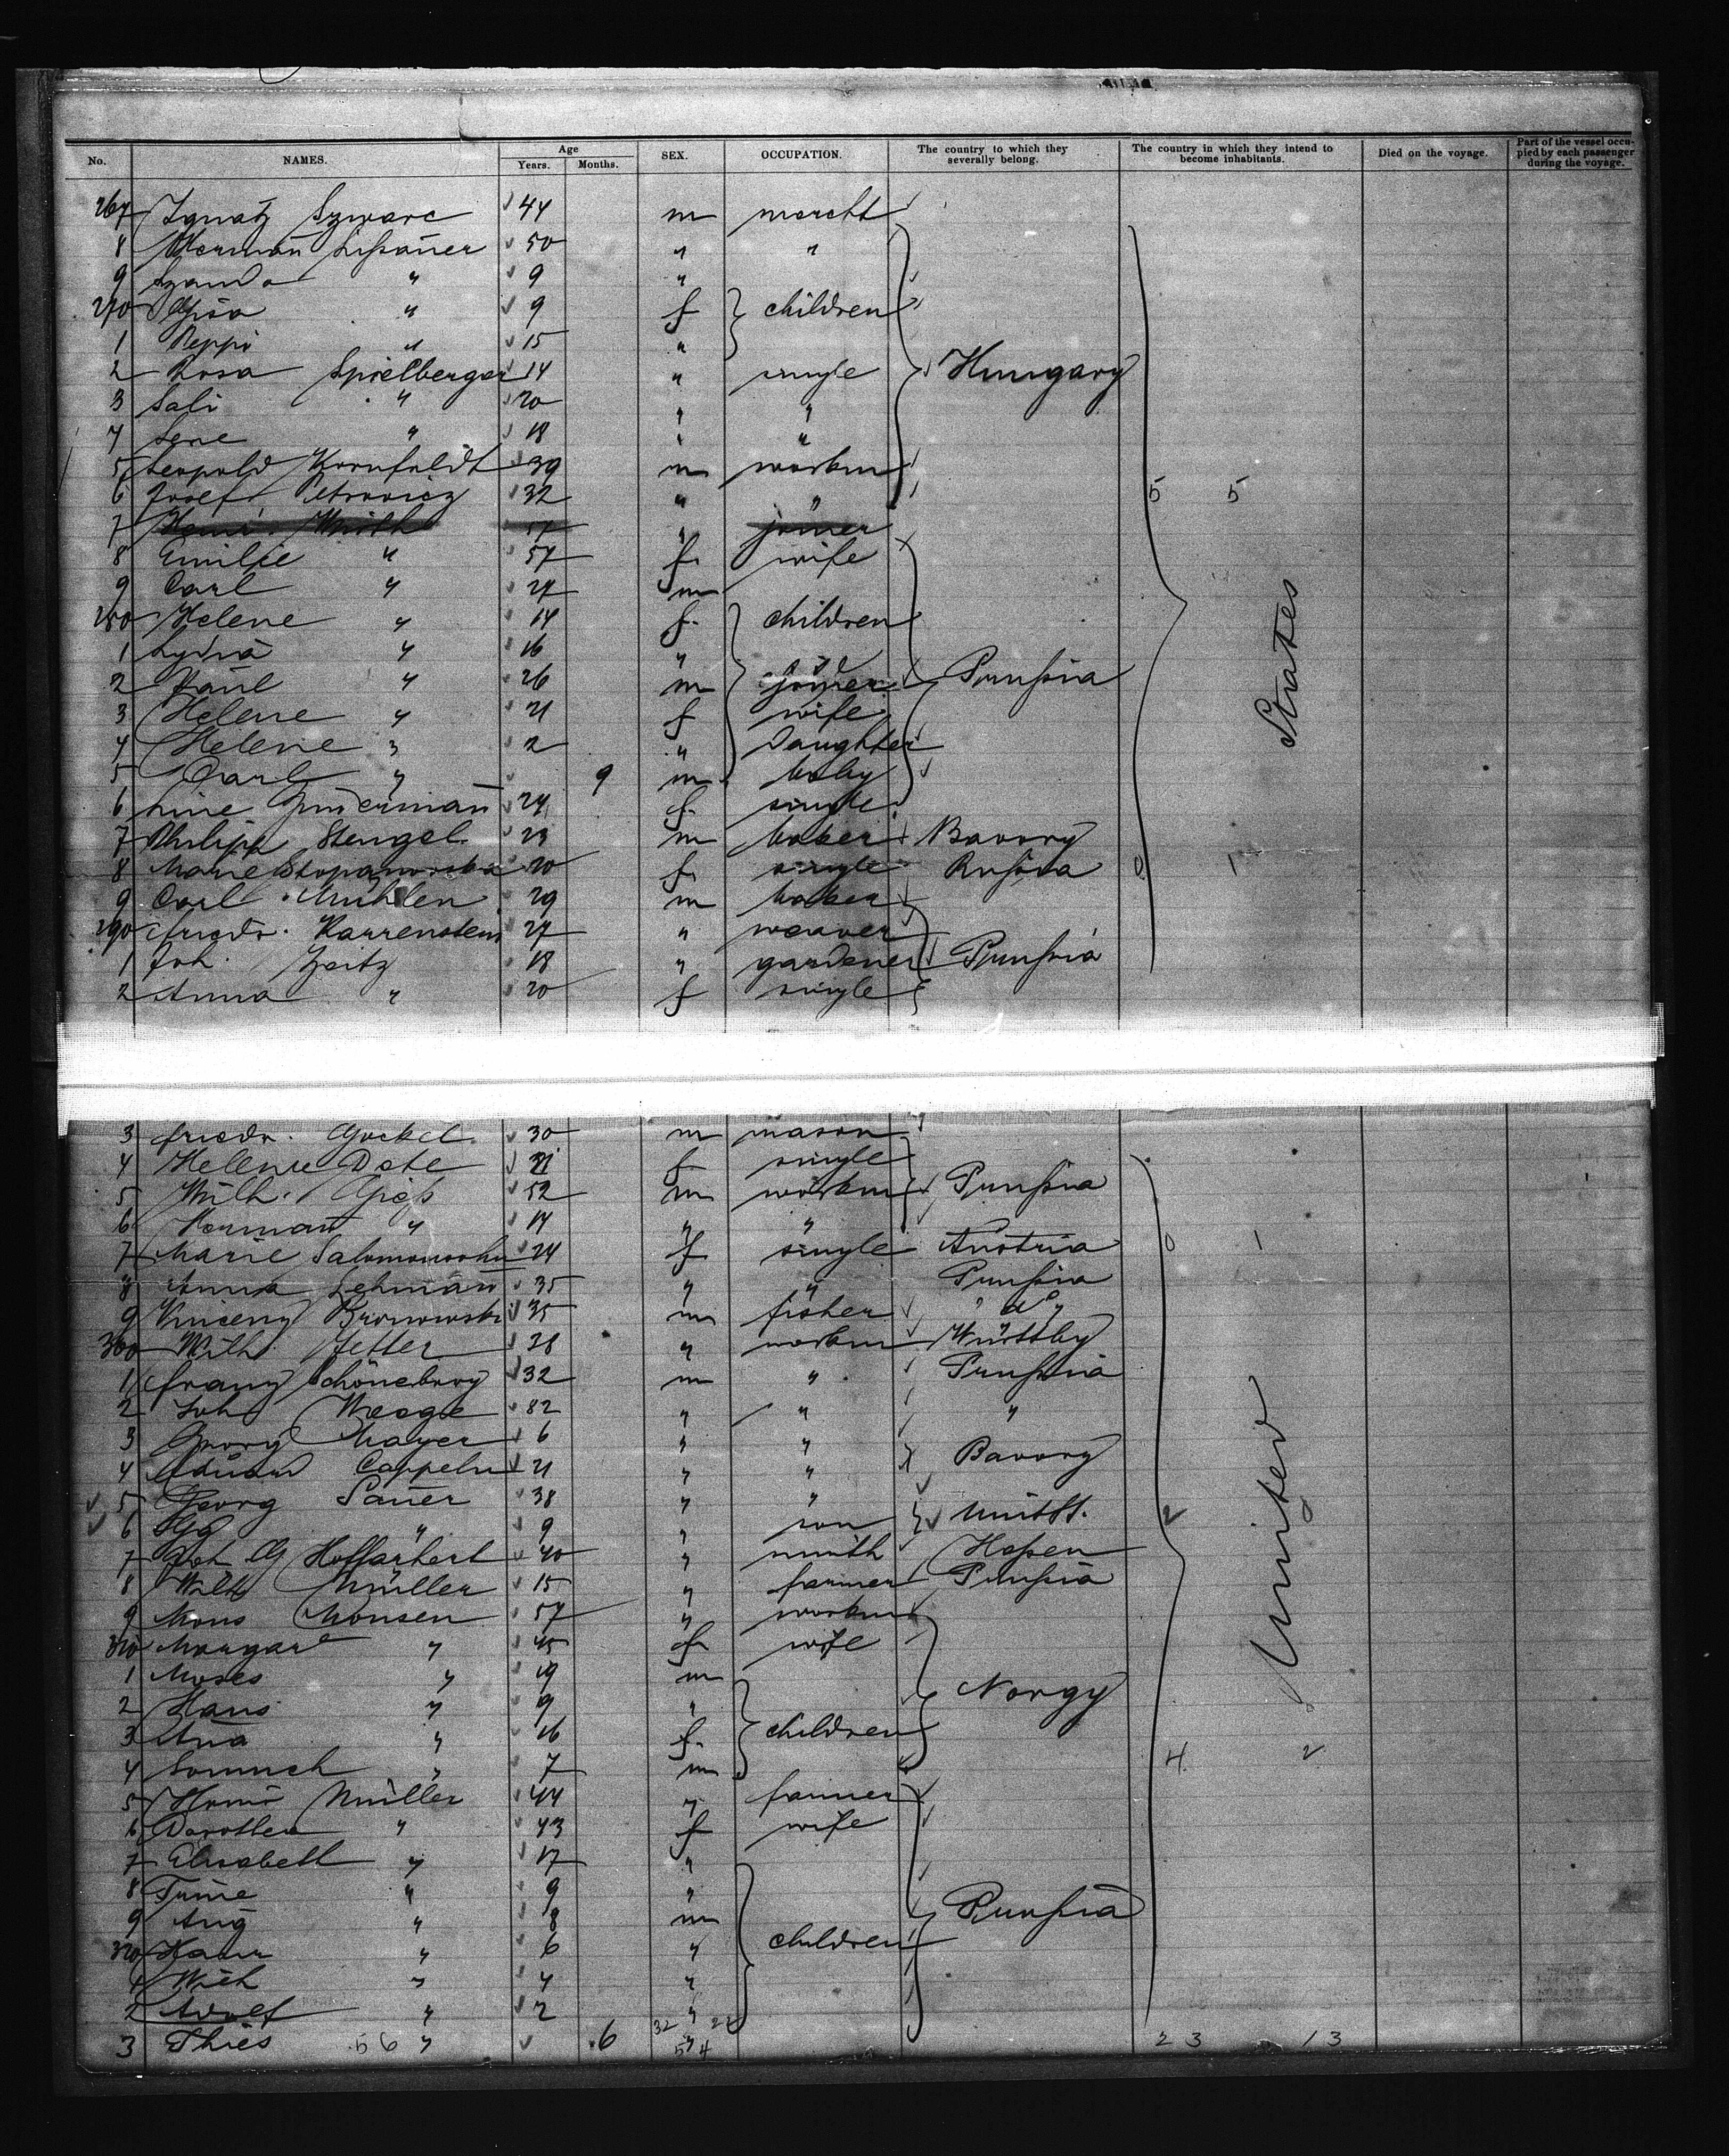 No. NAMES. Age Years. Months. SEX. OCCUPATION. The country to which they severally belong. The country in which they intend to become inhabitants. Died on the voyage. Part of the vessel occupied by each passenger during the voyage.
267 Ignatz Szwarc 44 m
8 Herman 50 " "
9 " 9 "
270 " 9 f children
1 Peppi " 15 "
2 Rosa Spielberger 14 " single Hungary
3 Sali " 20 " "
4 " 18 " "
5 Leopold Kornfeldt 39 m workm
6 Josef Petrovicz 32 " " 5 5
7 Wirth 57 " joiner
8 Emilie " 57 f wife
9 Carl " 27 m
280 Helene " 14 f children
1 Lydia " 16 "
2 Paul " 26 m joiner Prussia
3 Helene " 21 f wife
4 Helene " 2 " Daughter
5 Carl " 9 m baby
6 Line 24 f single
7 Philipp Stengel 23 m baker Bavory
8 Marie 20 f single Russia 0 1
9 Carl Mühlen 29 m baker
290 Friedr. Karrenstein 27 " weaver
1 Joh. 18 " gardener Prussia
2 Anna " 20 f single
States
3 Friedr. Gockel 30 m mason
4 Helene Dete 21 f single
5 Wilh. 52 m workm Prussia
6 Herman " 14 " "
7 Marie 24 f single Austria 0 1
8 Anna Lehman 35 " " Prussia
9 35 m fisher " do "
300 Wilh. Jetter 28 " workm
1 Franz 32 m " Prussia
2 Joh 82 " " "
3 Georg Mayer 6 " "
4 Eduard Cappeln 21 " " Bavory
5 Georg Sauer 38 " "
6 " 9 " son 2
7 Joh G 40 " smith Hessen
8 Wilh Müller 15 " farmer Prussia
9 Mons Monsen 57 " workm
310 " 45 f wife
1 Moses " 19 m
2 Hans " 9 " Norgy
3 Ana " 16 f children
4 " 7 m 4 2
5 Müller 44 " farmer
6 Dorothea " 43 f wife
7 Elisabeth " 17 "
8 " 9 "
9 Aug " 8 m Prussia
320 " 6 " children
1 " 4 "
2 Adolf " 2 " 32 22
3 Thies 56 " 6 " 54 23 13
United